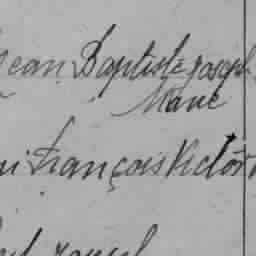 Jean Baptiste Joseph
Marie
François Victor